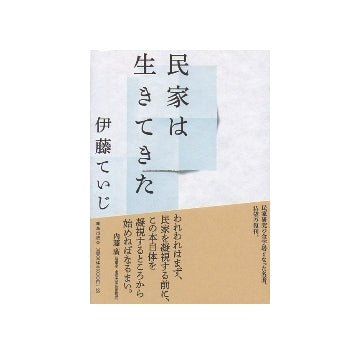 民家は
生きてきた
伊藤ていじ
われわれはまず、
民家を凝視する前に、
この本自体を
凝視するところから
始めねばなるまい。
内藤 廣